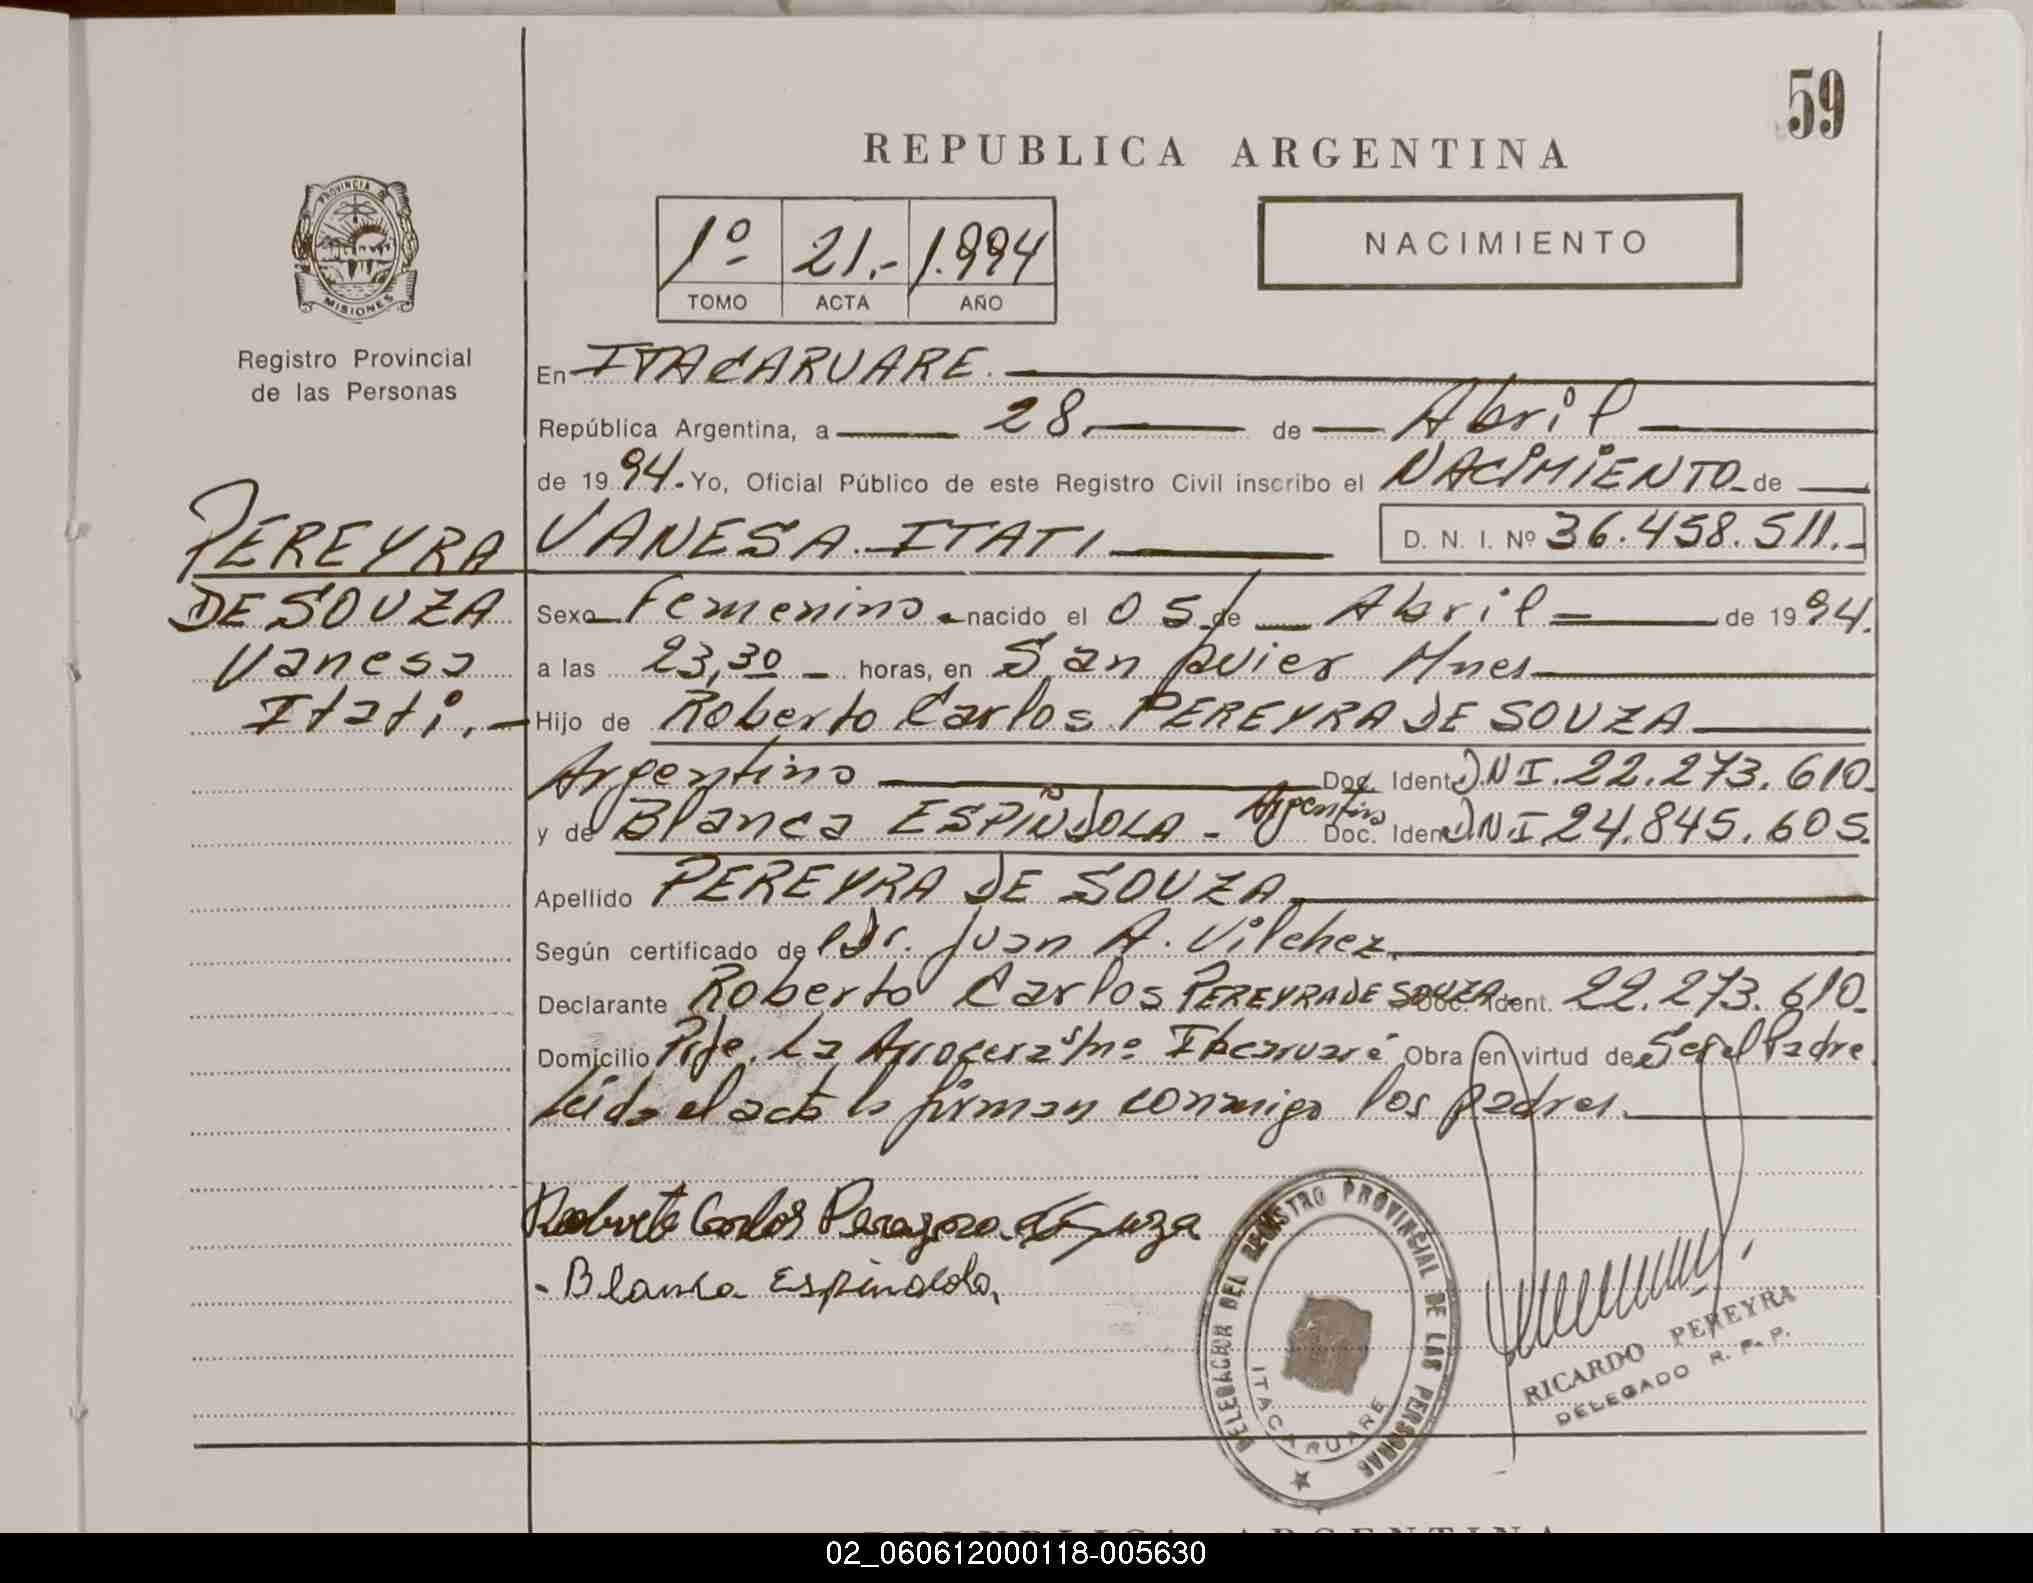 59
REPUBLICA ARGENTINA
PROVINCIA DE
MISIONES
Registro Provincial
de las Personas
1º 21.- 1.994
TOMO ACTA AÑO
NACIMIENTO
En ITACARUARE.
República Argentina, a 28. de Abril
de 1994. Yo, Oficial Público de este Registro Civil inscribo el NACIMIENTO de
PEREYRA
DE SOUZA
Vanesa
Itati.-
VANESA ITATI D. N. I. Nº 36.458.511.-
Sexo Femenino nacido el 05 de Abril de 1994.
a las 23,30 horas, en San Javier Mnes
Hijo de Roberto Carlos PEREYRA DE SOUZA
Argentino Doc. Ident. DNI. 22.273.610.
y de Blanca ESPINDOLA - Argentina Doc. Ident. DNI 24.845.605.
Apellido PEREYRA DE SOUZA
Según certificado de Dr. Juan A. Vilchez
Declarante Roberto Carlos PEREYRA DE SOUZA Doc. Ident. 22.273.610.
Domicilio La Obra en virtud de Ser el Padre
Leida el acta la firman conmigo los padres.
Roberto Carlos
- Blanca Espindola
DELEGACION DEL REGISTRO PROVINCIAL DE LAS PERSONAS
ITACARUARE
RICARDO PEREYRA
DELEGADO R. P. P.
REPUBLICA ARGENTINA
02_060612000118-005630